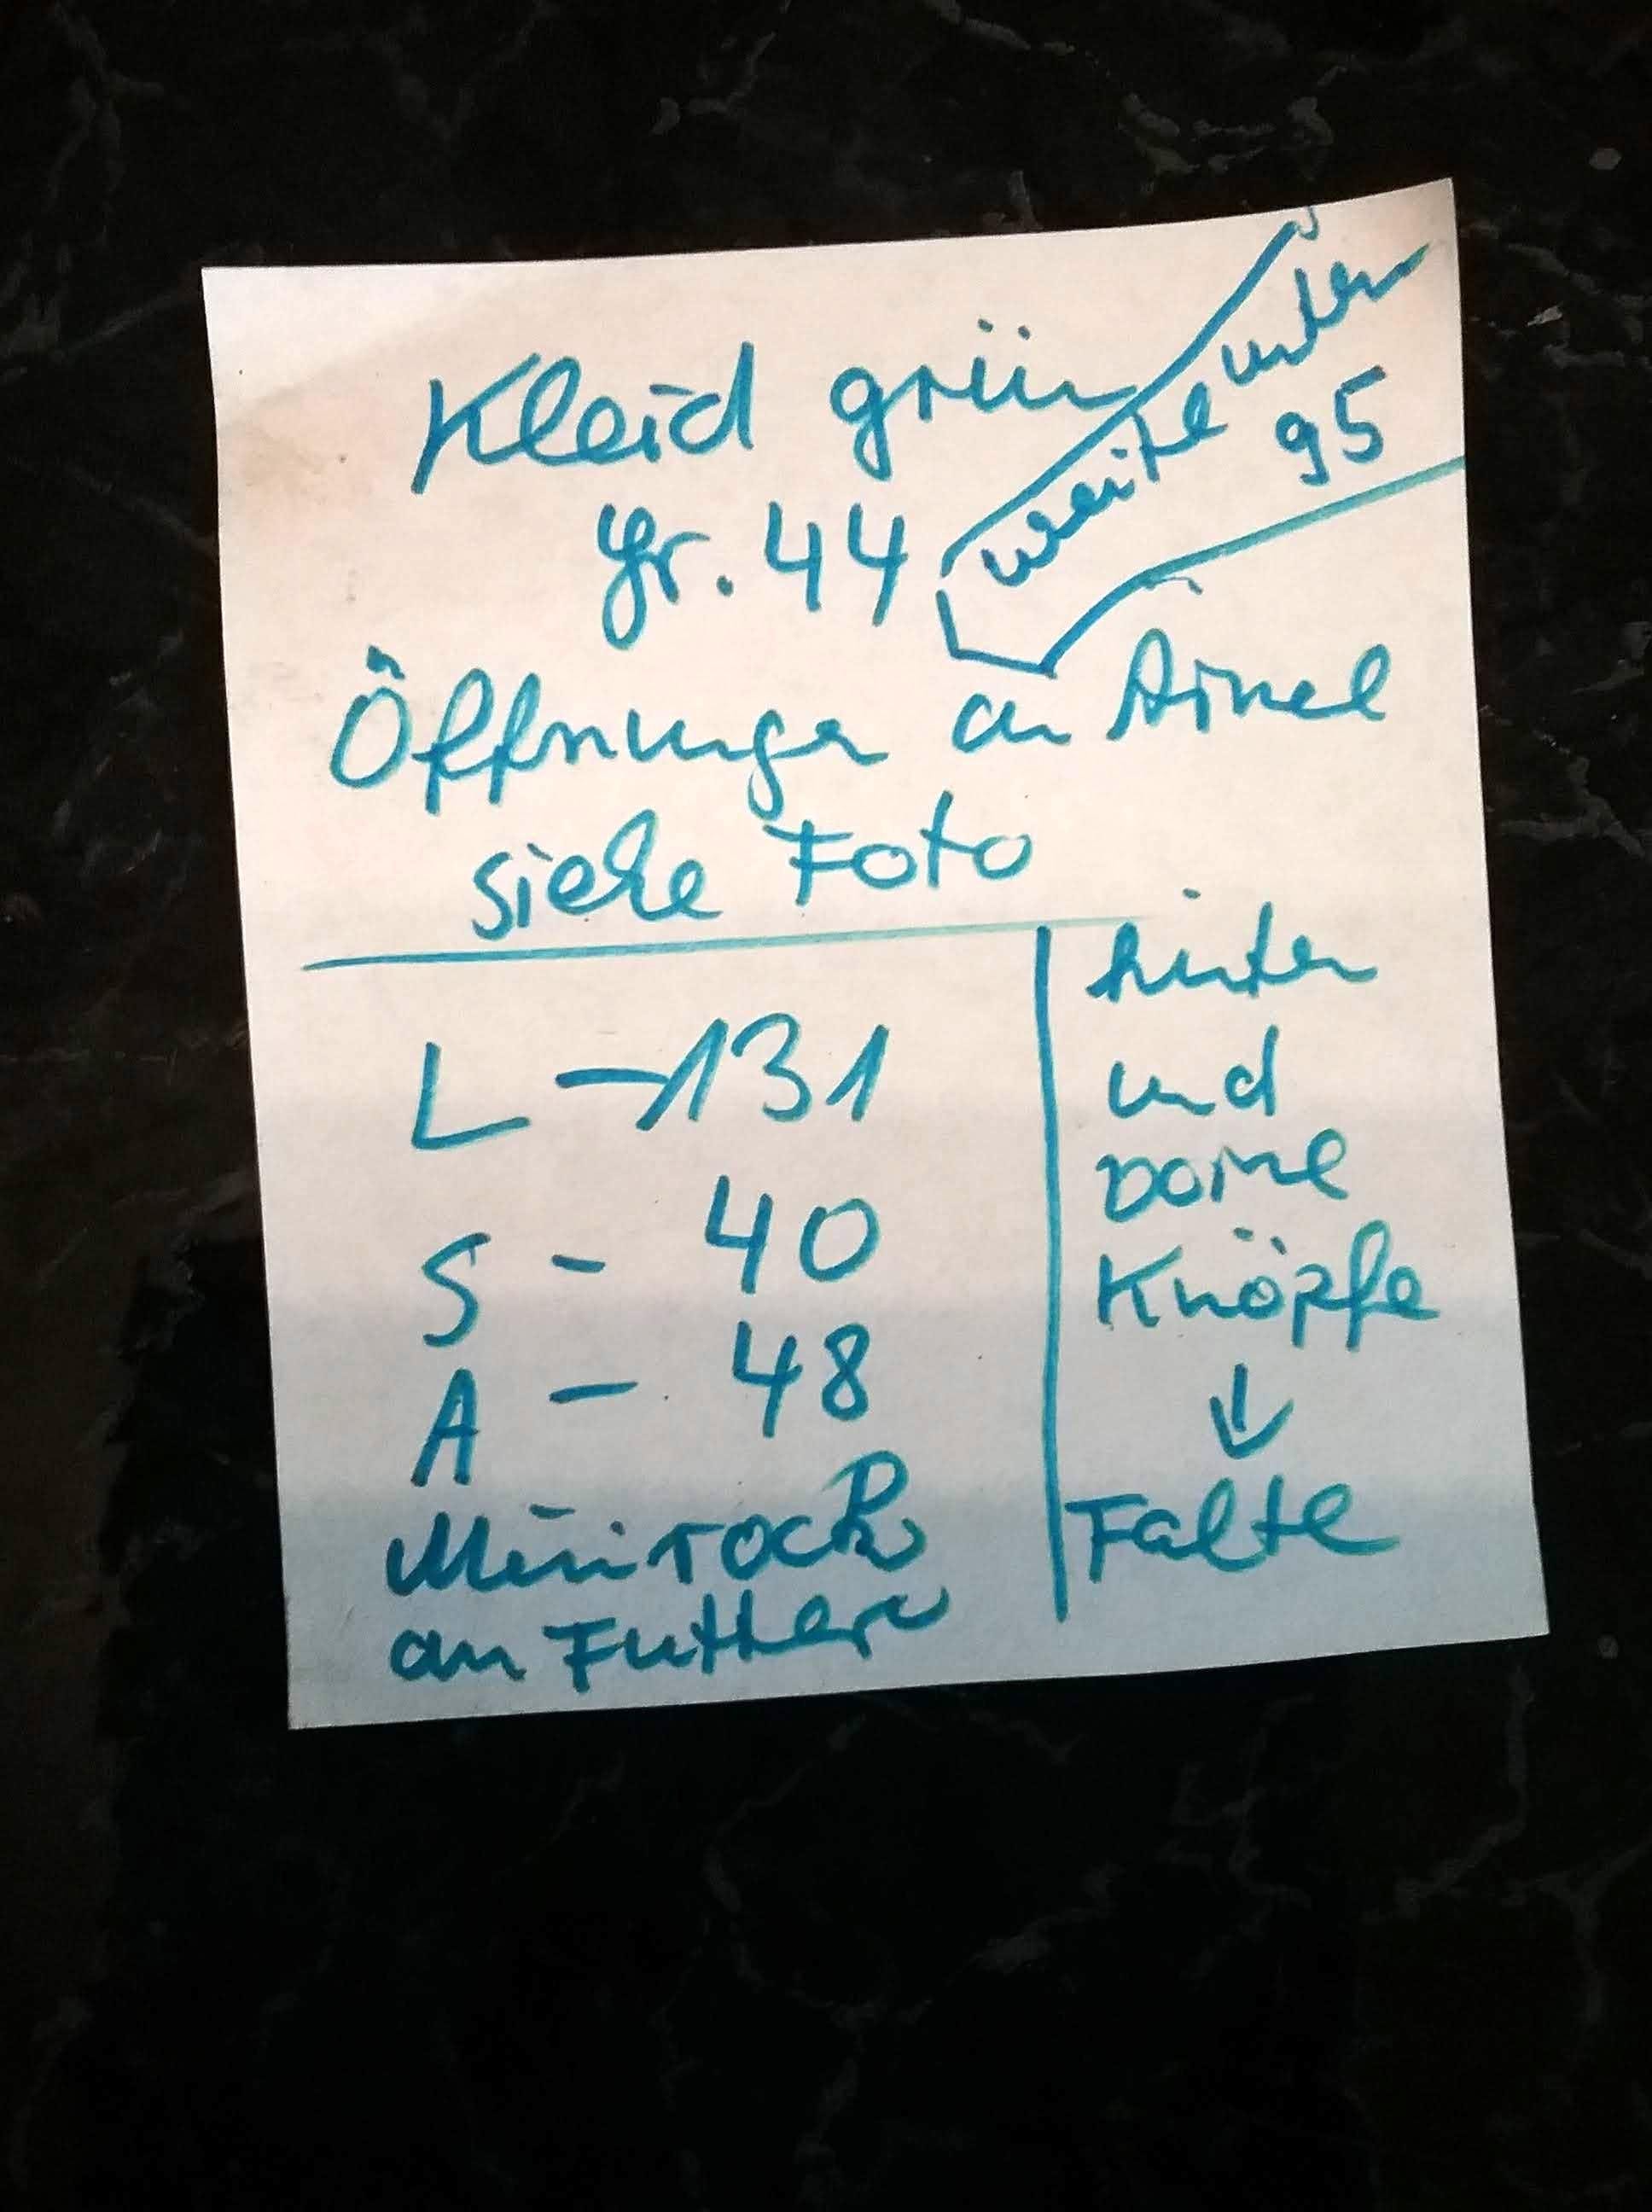 Kleid grün
Gr. 44
weite unten
95
Öffnungen an Ärmel
siehe Foto
L - 131
S - 40
A - 48
Minirock
an Futter
hinten
und
vorne
Knöpfe
↓
Falte